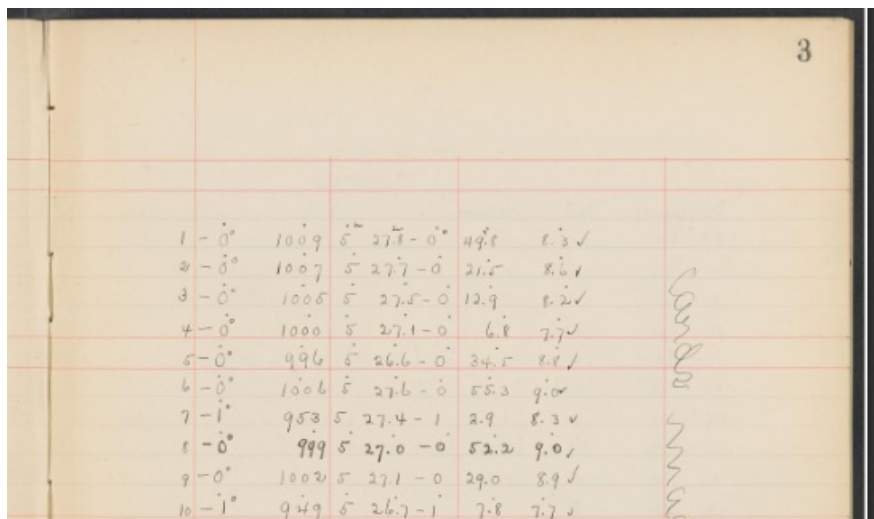 3
1 - 0° 1009 5 27.8 - 0° 49.8 8.3 ✓
2 - 0° 1007 5 27.7 - 0 21.5 8.6 ✓
3 - 0° 1005 5 27.5 - 0 12.9 8.2 ✓
4 - 0° 1000 5 27.1 - 0 6.8 7.7 ✓
5 - 0° 996 5 26.6 - 0 34.5 8.8 ✓
6 - 0° 1006 5 27.6 - 0 55.3 9.0 ✓
7 - 1° 953 5 27.4 - 1 2.9 8.3 ✓
8 - 0° 999 5 27.0 - 0 52.2 9.0 ✓
9 - 0° 1002 5 27.1 - 0 29.0 8.9 ✓
10 - 1° 949 5 26.7 - 1 7.8 7.7 ✓